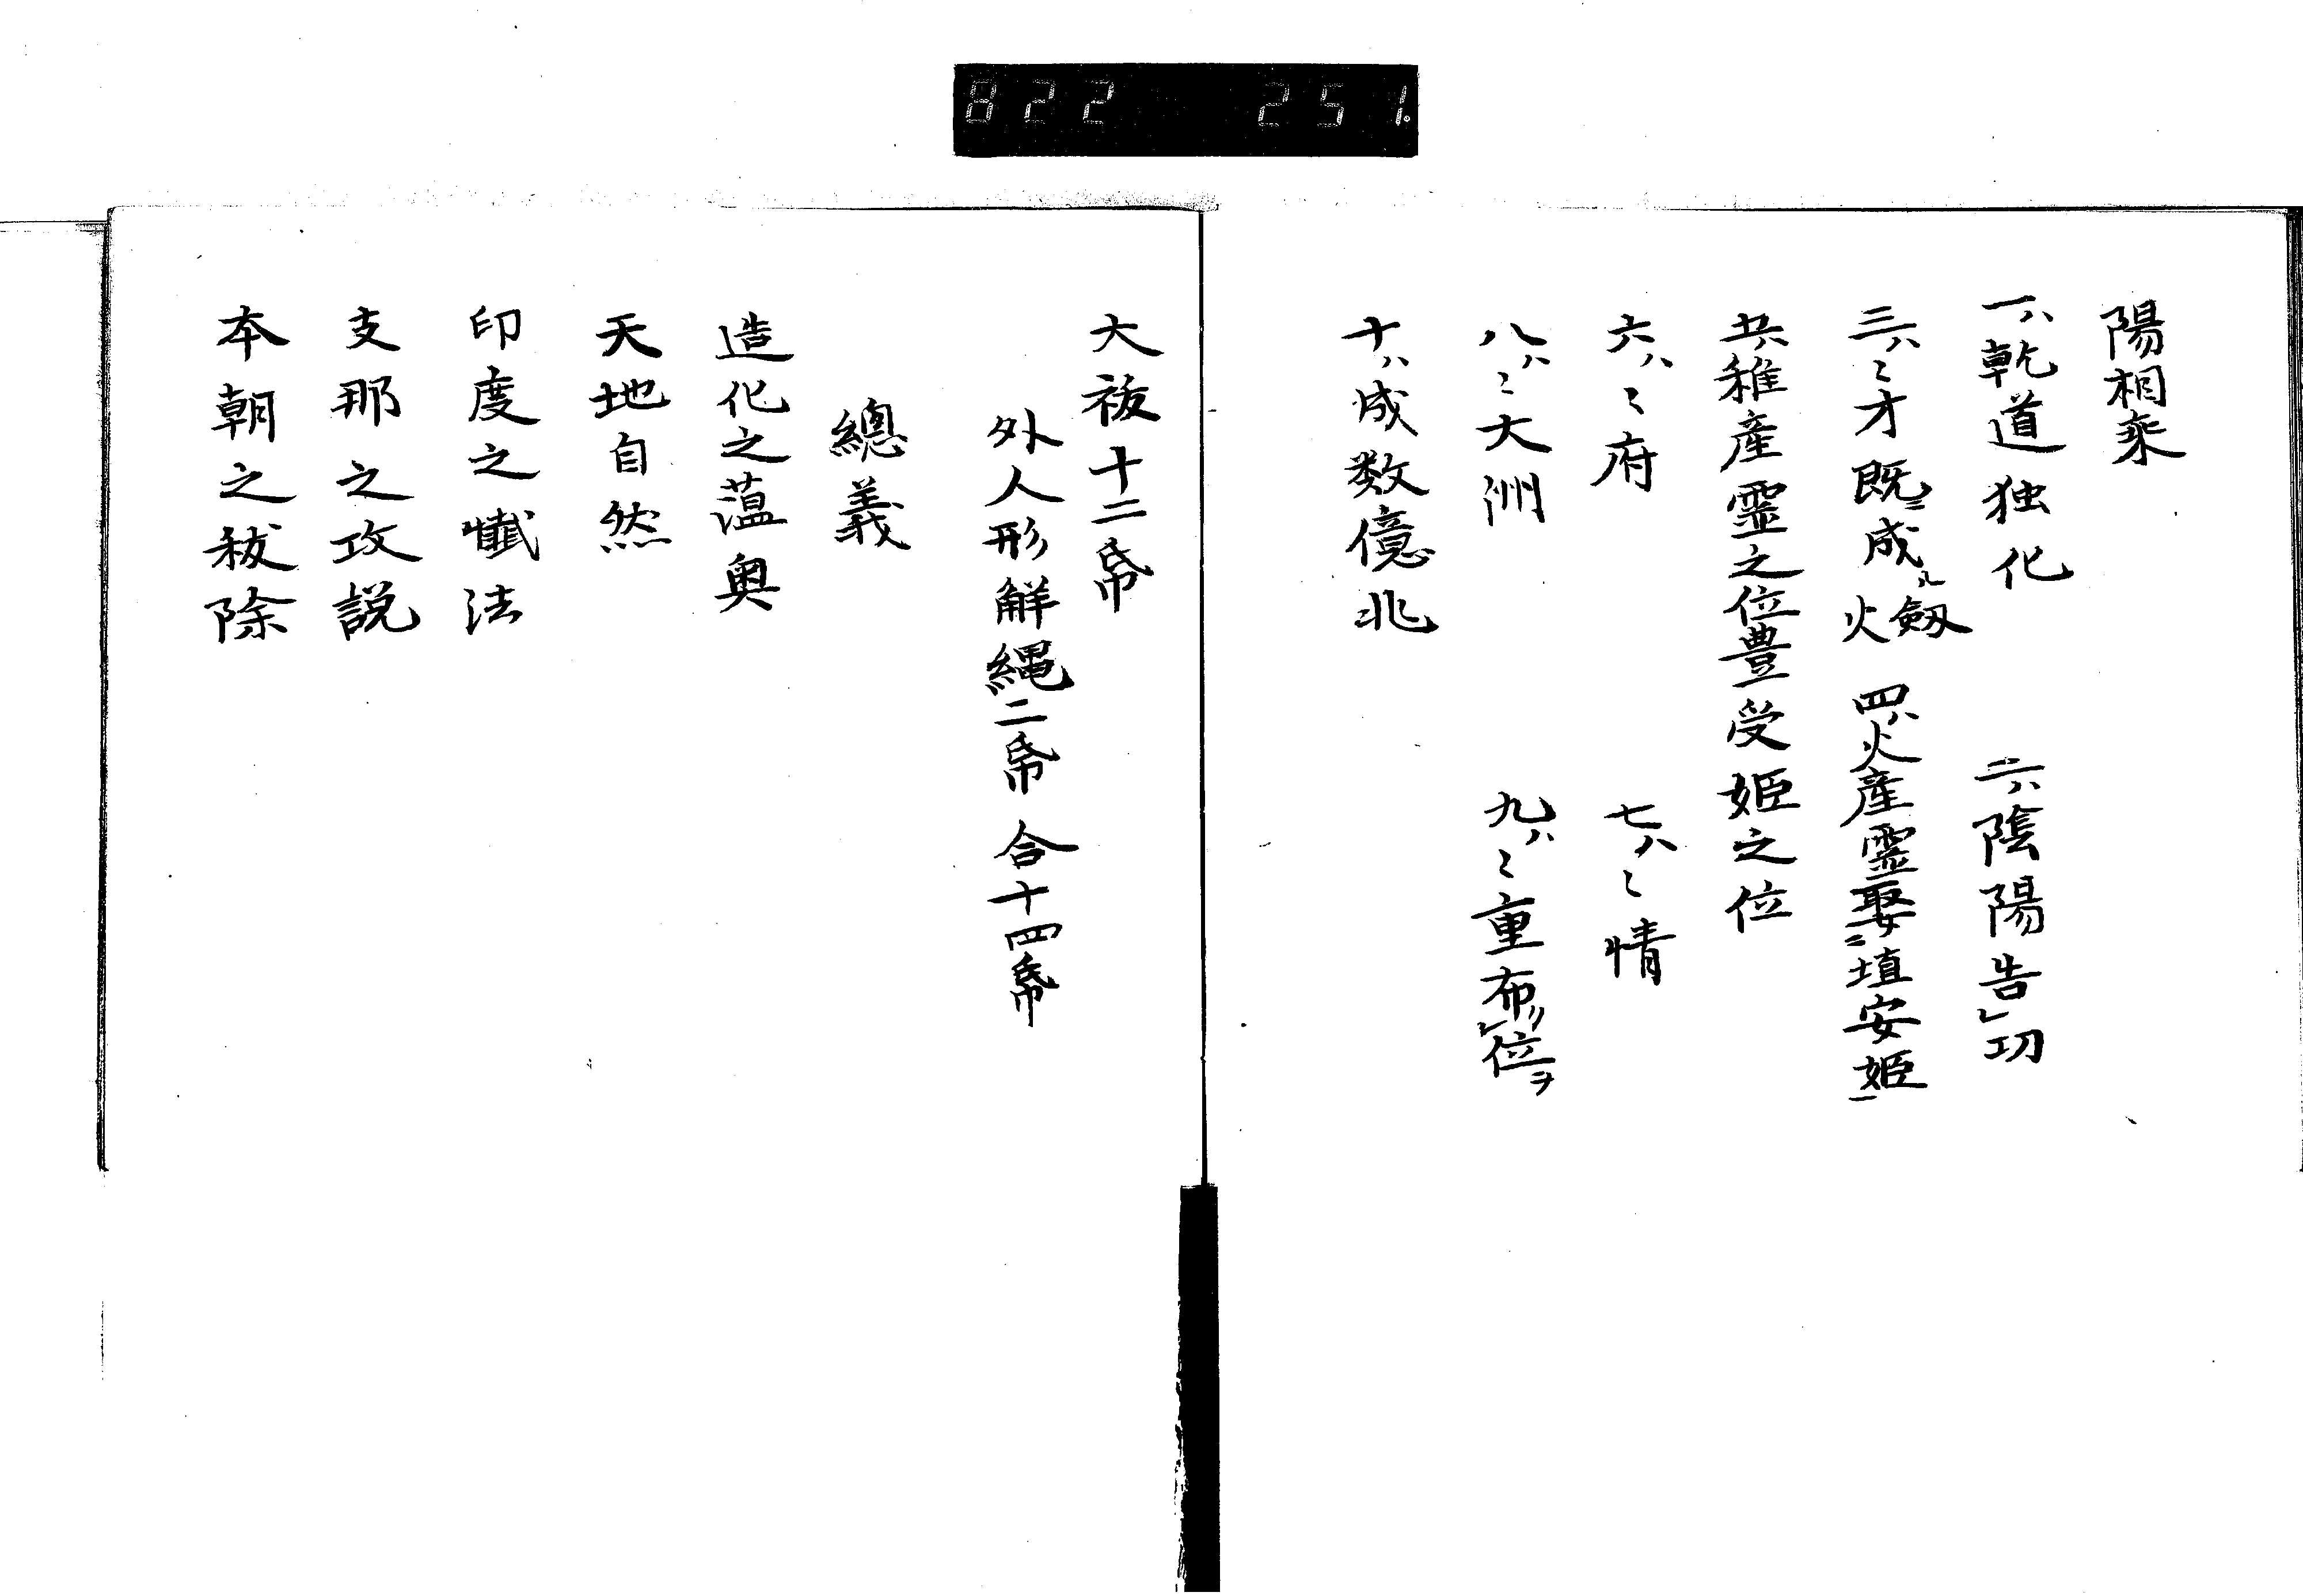 822 251.
陽相乗
一ハ乾道独化 二ハ陰陽告レ功
三ハ〻才既ニ成ル 劔火 四ハ火産霊娶ニ埴安姫一
五ハ稚産霊之位豊受姫之位
六ハ〻府 七ハ〻情
八ハ〻大洲 九ハ〻重布リレ位ヲ
十ハ成数億兆
大祓十二帋
外人形解縄二帋 合十四帋
總義
造化之薀奥
天地自然
印度之懺法
支那之攻説
本朝之秡除